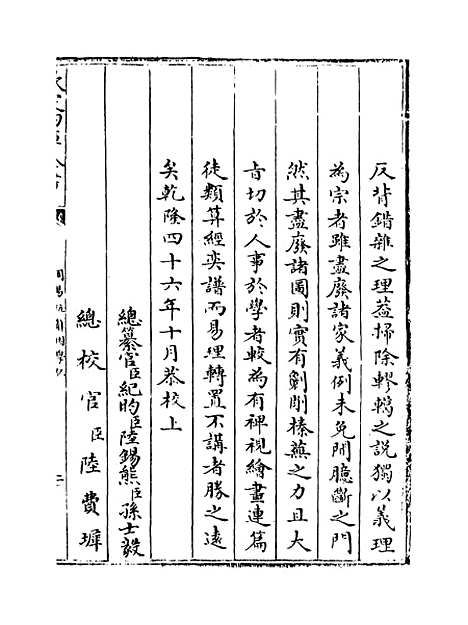 反背錯雜之理葢掃除轇轕之說獨以義理
為宗者雖盡廢諸家義例未免開臆斷之門
然其盡廢諸圖則實有剷削榛蕪之力且大
㫖切於人事於學者較為有裨視繪畫連篇
徒類算經奕譜而易理轉置不講者勝之遠
矣乾隆四十六年十月恭校上
總纂官臣紀昀臣陸錫熊臣孫士毅
總校官臣陸費墀